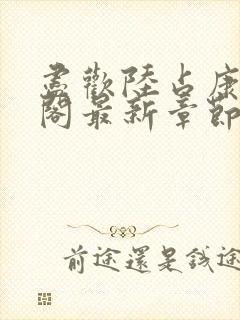 尽歡陸占康
閣最新章節
前途還是錢途